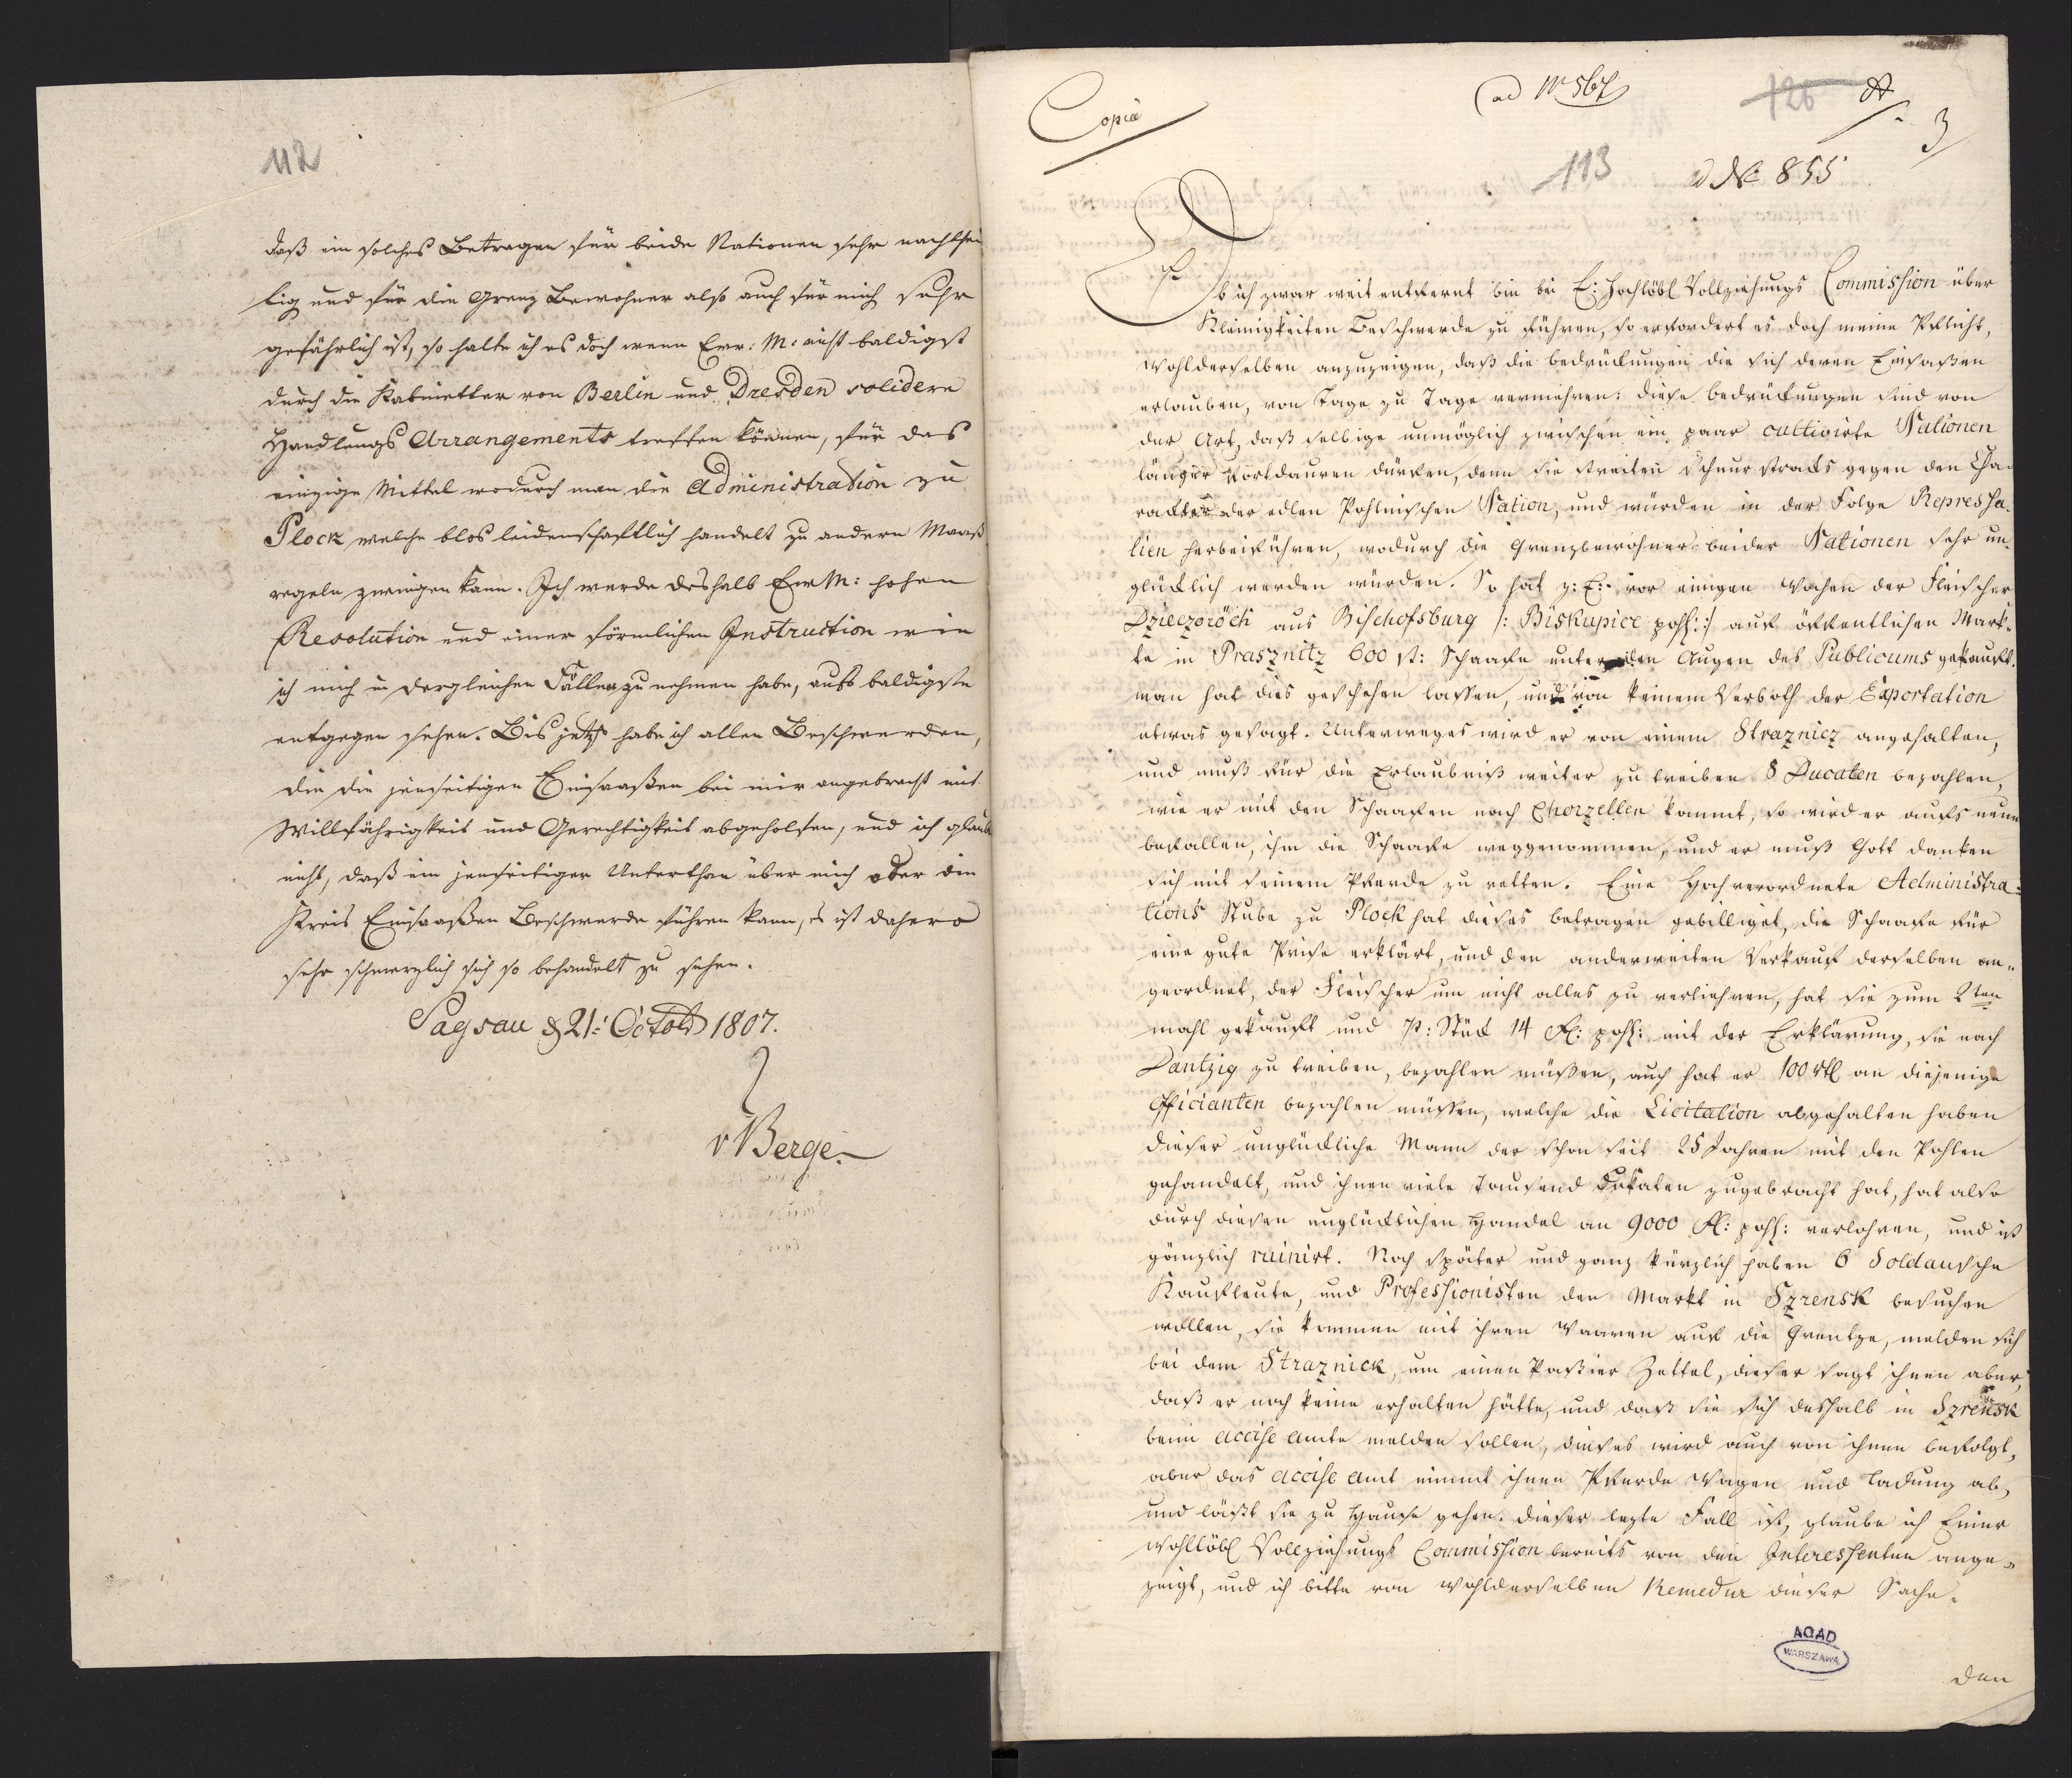 112
daß ein solches Betragen für beide Nationen sehr nachthei
lig und für die Grenz Bewohner also auch für mich sehr
gefährlich ist, so halte ich es doch wenn Ew: M: nicht baldigst
durch die Kabinetter von Berlin und Dresden solidere
Handlungs Arrangements treffen können, für das
einzige Mittel wodurch man die Administration zu
Plock welche blos leidenschaftlich handelt zu andern Maaß
regeln zwingen kann. Ich werde deshalb Ew M: hohen
Resolution und einer förmlichen Instruction wie
ich mich in dergleichen Fällen zu nehmen habe, aufs baldigste
entgegen sehen. Bis jetzt habe ich allen Beschwerden,
die die jenseitigen Einsaaßen bei mir angebracht mit
Willfährigkeit und Gerechtigkeit abgeholfen, und ich glaube
nicht, daß ein jenseitiger Unterthan über mich oder die
Kreis Einsaaßen Beschwerde führen kann, es ist dahero
sehr schmerzlich sich so behandelt zu sehen.
Sagsau d 21: Octob 1807.
v Berge.
Copia
ad Nr 567
126
3
113
ad No 855
Ob ich zwar weit entfernt bin bei E: Hochlöbl Vollziehungs Commission über
Kleinigkeiten Beschwerde zu führen, so erfordert es doch meine Pflicht,
Wohlderselben anzuzeigen, daß die bedrückungen die sich deren Einsaßen
erlauben, von Tage zu Tage vermehren: diese bedrückungen sind von
der Art, daß selbige unmöglich zwischen ein paar cultivirte Nationen
länger fortdauren dürfen, denn sie streiten schnur stracks gegen den Cha-
rackter der edlen Pohlnischen Nation, und würden in der Folge Repressa-
lien herbeiführen, wodurch die Grenzbewohner beider Nationen sehr un-
glücklich werden würden. So hat z: E: vor einigen Wochen der Fleischer
Dzieczoroch aus Bischofsburg /: Biskupice pohl: :/ auf öffentlichen Mark-
te in Prasznitz 600 st: Schaafe unter den Augen des Publicums gekauft.
man hat dies geschehen lassen, und von keinem Verboth der Exportation
etwas gesagt. Unterweges wird er von einem Straznicz angehalten,
und muß für die Erlaubniß weiter zu treiben 8 Ducaten bezahlen,
wie er mit den Schaafen nach Chorzellen kommt, so wird er aufs neue
befallen, ihm die Schaafe weggenommen, und er muß Gott danken
sich mit seinem Pferde zu retten. Eine Hochverordnete Administra-
tions Stube zu Plock hat dieses betragen gebilliget, die Schaafe für
eine gute Prise erklärt, und den anderweiten Verkauf derselben an-
geordnet, der Fleischer um nicht alles zu verliehren, hat sie zum 2ten
mahl gekauft und p: Stück 14 Fl: pohl: mit der Erklärung, sie nach
Dantzig zu treiben, bezahlen müßen, auch hat er 100 rtl an diejenige
Officianten bezahlen müssen, welche die Licitation abgehalten haben
dieser unglückliche Mann der schon seit 25 Jahren mit den Pohlen
gehandelt, und ihnen viele Tausend Dukaten zugebracht hat, hat also
durch diesen unglücklichen Handel an 9000 Fl: pohl: verlohren, und ist
gänzlich ruinirt. Noch später und ganz kürzlich haben 6 Soldausche
Kaufleute, und Professionisten den Markt in Szrensk besuchen
wollen, sie kommen mit ihren Waaren auf die Grentze, melden sich
bei dem Straznick, um einen Paßier Zettel, dieser sagt ihnen aber,
daß er noch keine erhalten hätte, und daß sie sich deshalb in Szrensk
beim accise amte melden sollen, dieses wird auch von ihnen befolgt,
aber das accise amt nimmt ihnen Pferde Wagen und Ladung ab,
und läßt sie zu Hause gehen. dieser lezte Fall ist, glaube ich Einer
Wohllöbl Vollziehungs Commission bereits von den Interessenten ange-
zeigt, und ich bitte von Wohlderselben Remedur dieser Sache.
AGAD
WARSZAWA
den